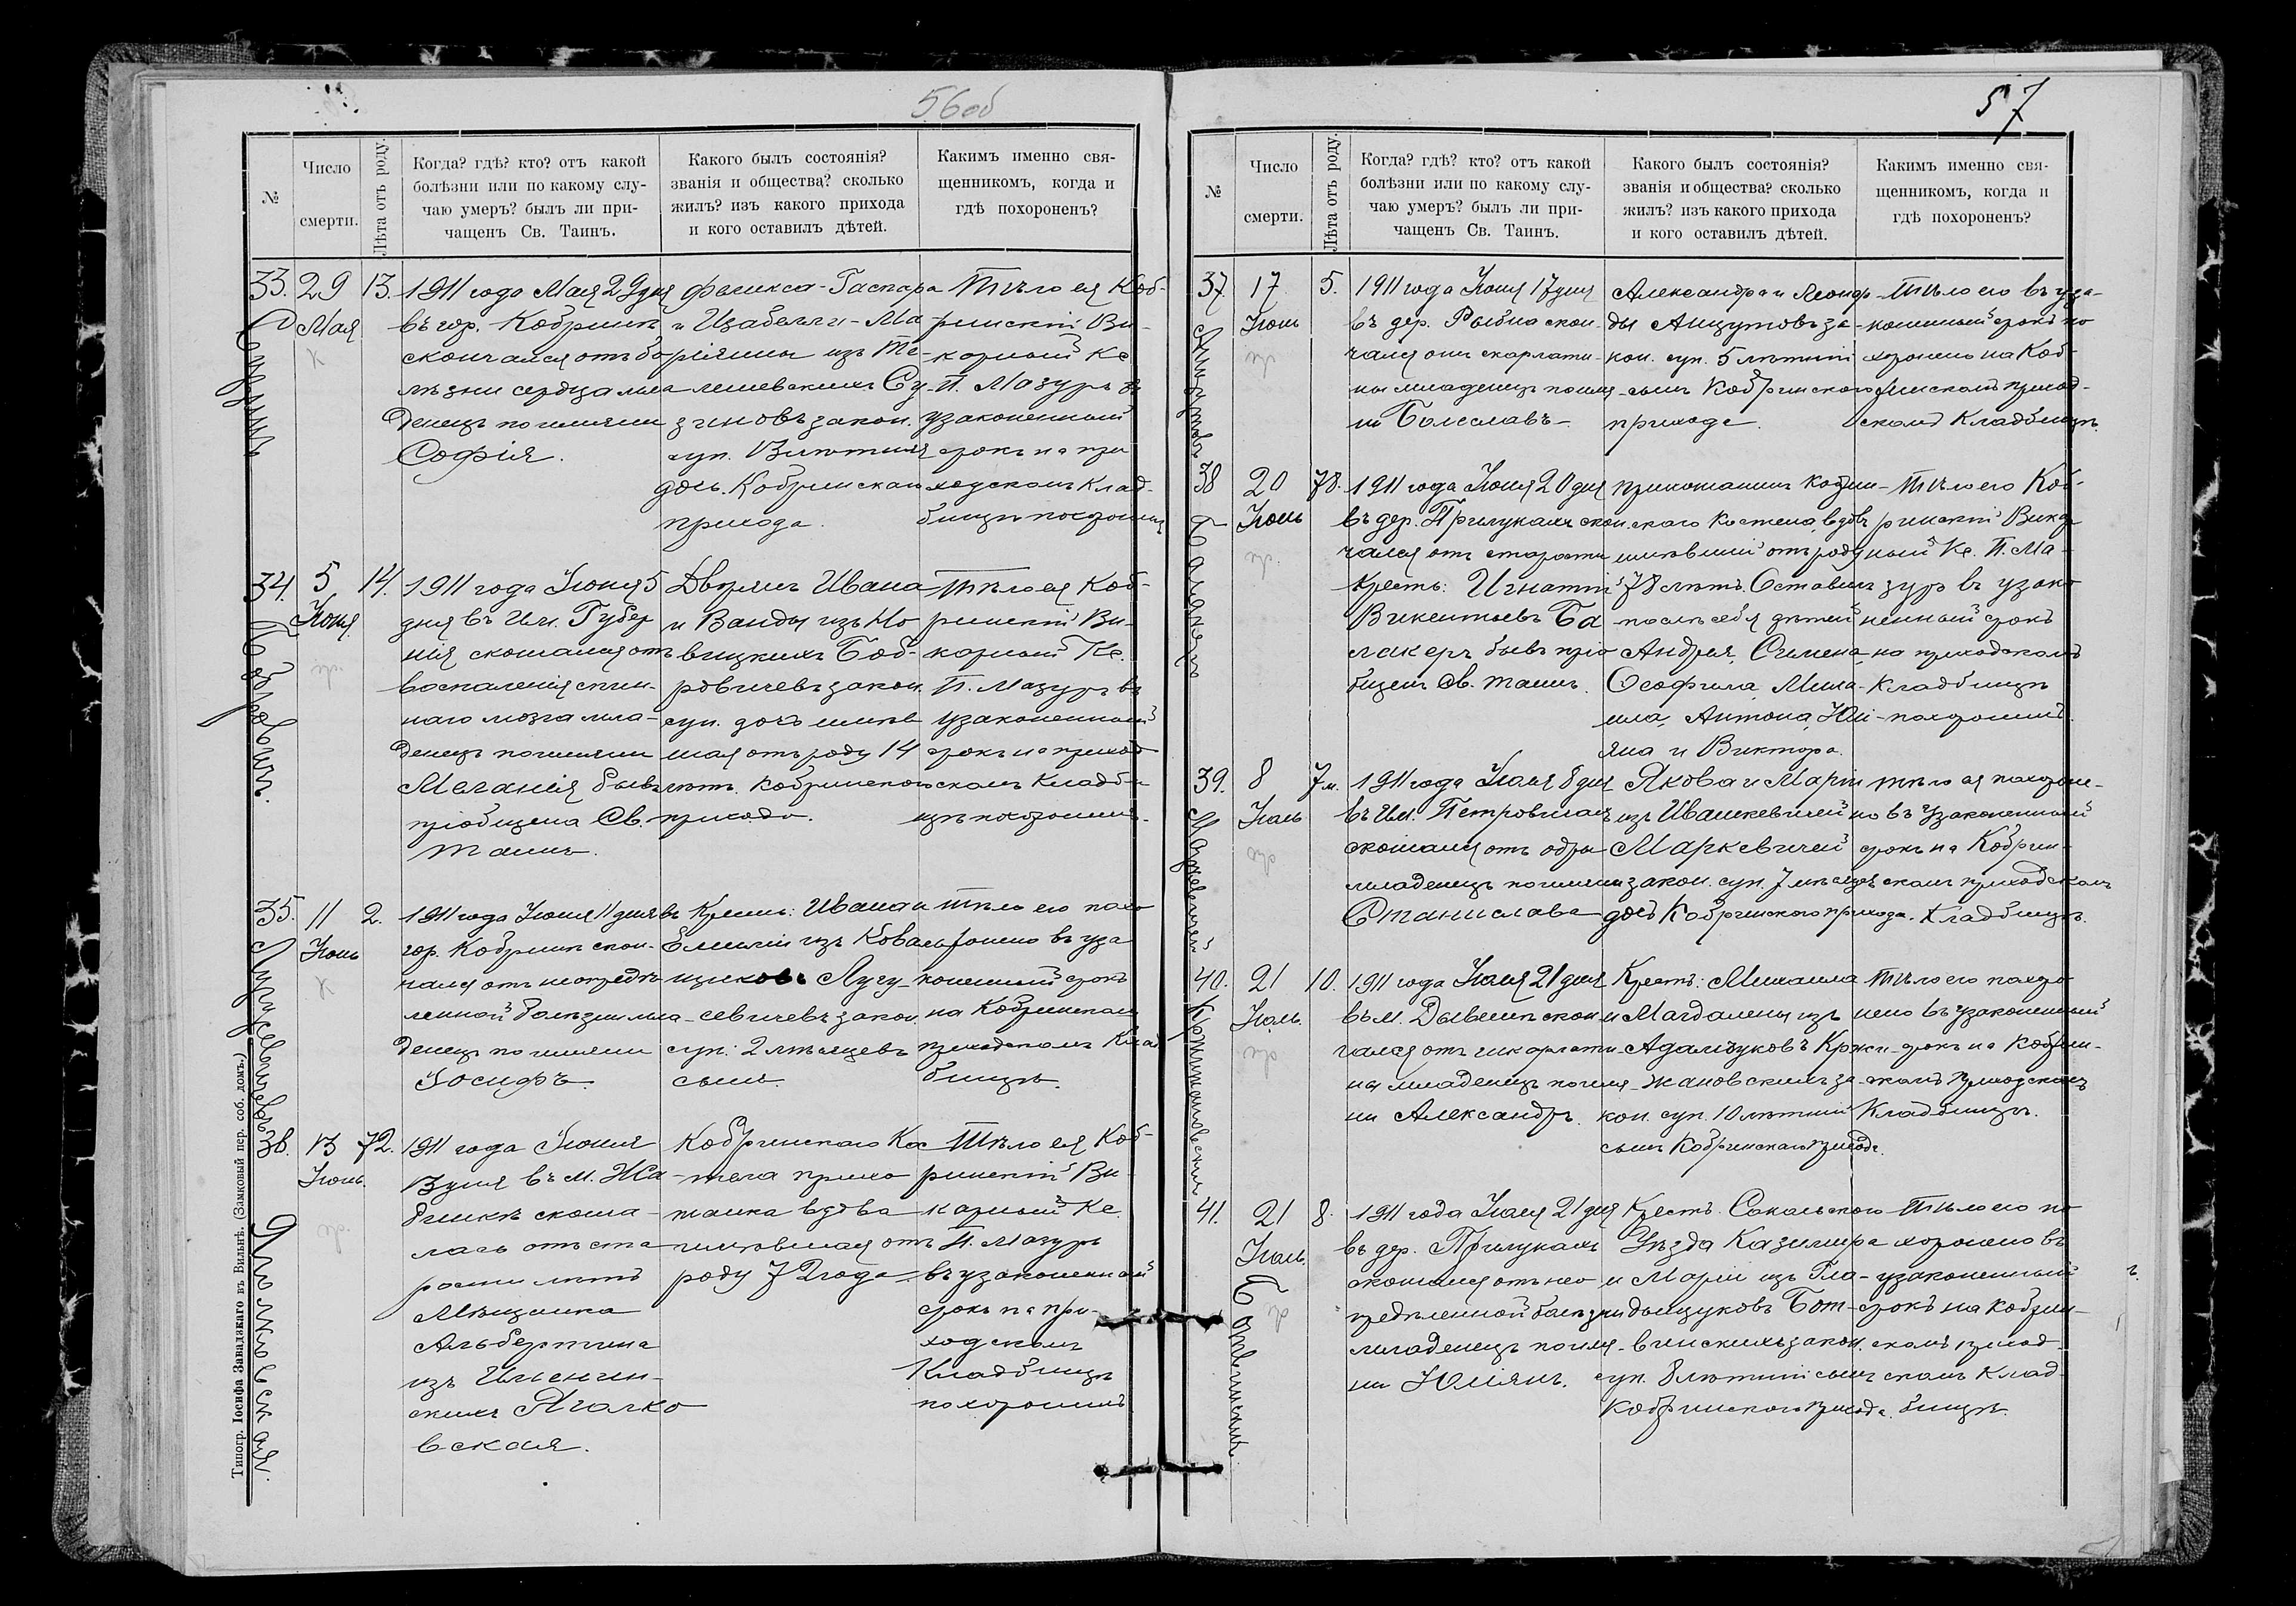 56об
№
Число
смерти.
Лѣта отъ роду.
Когда? гдѣ? кто? отъ какой
болѣзни или по какому слу-
чаю умеръ? былъ ли при-
чащенъ Св. Таинъ.
Какого былъ состоянія?
званія и общества? сколько
жилъ? изъ какого прихода
и кого оставилъ дѣтей.
Какимъ именно свя-
щенникомъ, когда и
гдѣ похороненъ?
33.
29
Мая
к
13.
1911 года Мая 29 дня
въ гор. Кобринѣ
скончался отъ бо
лѣзни сердца мла
денецъ по имени
Софія.
Феликса-Гаспара
и Изабелли-Ма
ріянны изъ Те-
лешевскихъ Су-
зиновъ закон.
суп.
дочь. Кобринскаго
прихода.
Тѣло ея Коб-
ринскій Ви-
карный Кс
П. Мазуръ въ
узаконенный
срокъ на при
ходскомъ Клад-
бищѣ похоронилъ
34.
5
Іюня
пр.
Бобровичъ.
14.
1911 года Іюня 5
дня въ Им. Губер
нія скончался отъ
воспаленія спин-
наго мозга мла-
денецъ по имени
Меланія бывъ
пріобщена Св.
Таинъ.
Дворянъ Ивана
и Ванды изъ Но
вицкихъ Боб-
ровичевъ закон.
суп. дочь имѣв
шая отъ роду 14
лѣтъ. Кобринскаго
прихода.
Тѣло ея Коб-
ринскій Ви-
карный Кс.
П. Мазуръ въ
узаконенный
срокъ на приход
скомъ Кладби-
щѣ похоронилъ.
35.
11
Іюнь
к
2.
1911 года Іюня 11 дня въ
гор. Кобринѣ скон-
чался отъ неопредѣ
ленной болѣзни мла-
денецъ по имени
Іосифъ.
Крест: Ивана и
Емиліи изъ Коваль
щиковъ Лугу-
севичевъ закон.
суп: 2 мѣсяцевъ
сынъ.
Тѣло его похо
ронено въ уза
коненный срокъ
на Кобринскомъ
приходскомъ Клад
бищѣ.
36.
13
Іюнь.
пр.
Яголковская.
72.
1911 года Іюня
13 дня въ М. Жа
бинкѣ сконча-
лась отъ ста
рости лѣтъ
Мѣщанка
Альбертина
изъ
скихъ Яголко
вская.
Кобринскаго Кос
тела прихо
жанка вдова
имѣвшая отъ
роду 72 года
Тѣло ея Коб-
ринскій Ви-
карный Кс.
П. Мазуръ
въ узаконенный
срокъ на при-
ходскомъ
Кладбищѣ
похоронилъ
Типогр. Іосифа Завадзкаго въ Вильнѣ. (Замковый пер. соб. домъ.)
57
№
Число
смерти.
Лѣта отъ роду.
Когда? гдѣ? кто? отъ какой
болѣзни или по какому слу-
чаю умеръ? былъ ли при-
чащенъ Св. Таинъ.
Какого былъ состоянія?
званія и общества? сколько
жилъ? изъ какого прихода
и кого оставилъ дѣтей.
Какимъ именно свя-
щенникомъ, когда и
гдѣ похороненъ?
37.
17
Іюнь
пр
5.
1911 года Іюня 17 дня
въ дер. Рыбна скон-
чался отъ скарлати-
ны младенецъ по име-
ни Болеславъ.
Александра и Леонар
ды Анцутовъ за-
кон. суп. 5 лѣтній
сынъ Кобринскаго
прихода.
Тѣло его въ уза-
коненный срокъ по
хоронено на Коб-
ринскомъ приход-
скомъ Кладбищѣ.
38
20
Іюнь
пр.
78.
1911 года Іюня 20 дня
въ дер. Прилукахъ скон
чался отъ старости
Крестъ: Игнатій
Викентьевъ Ба
лакеръ бывъ пріо
бщенъ Св. Таинъ.
прихожанинъ Кобрин-
скаго Костела, вдовъ
имѣвшій отъ роду
78 лѣтъ. Оставилъ
послѣ себя дѣтей
Андрея, Симена,
Ѳеофила, Миха-
ила, Антона, Юлі-
яна и Виктора.
Тѣло его Коб-
ринскій Викар
ный Кс. П. Ма-
зуръ въ узако
ненный срокъ
на приходскомъ
Кладбищѣ
похоронилъ.
39.
8
Іюль
пр
7 м.
1911 года Іюля 8 дня
въ Им. Петровичахъ
скончался отъ одры
младенецъ по имени
Станислава
Якова и Маріи
изъ Ивашкевичей
Маркевичей
закон. суп. 7 мѣсяцевъ
дочь Кобринскаго прихода.
Тѣло ея похоро-
но въ узаконенный
срокъ на Кобрин-
скомъ приходскомъ
Кладбищѣ.
40.
21
Іюль.
пр
10.
1911 года Іюля 21 дня
въ М. Дывинѣ скон
чался отъ шкарлати-
ны младенецъ по име-
ни Александръ.
Крестъ: Михаила
и Магдалены изъ
Адамчуковъ Кржи-
жановскихъ за-
кон. суп. 10 лѣтній
сынъ Кобринскаго прихода.
Тѣло его похоро
нено въ узаконенный
срокъ на Кобрин-
скомъ приходскомъ
Кладбищѣ.
41.
21
Іюль.
пр
8.
1911 года Іюля 21 дня
въ дер. Прилукахъ
скончался отъ нео
предѣленной болѣзни
младенецъ по име-
ни Юліянъ.
Крестъ. Сокольского
Уѣзда Казимира
и Маріи изъ Гла-
дыщуковъ Бот-
винскихъ закон.
суп. 8 лѣтній сынъ
Кобринского прихода.
Тѣло его по
хоронено въ
узаконенный
срокъ на Кобрин-
скомъ приход-
скомъ Клад-
бищѣ.